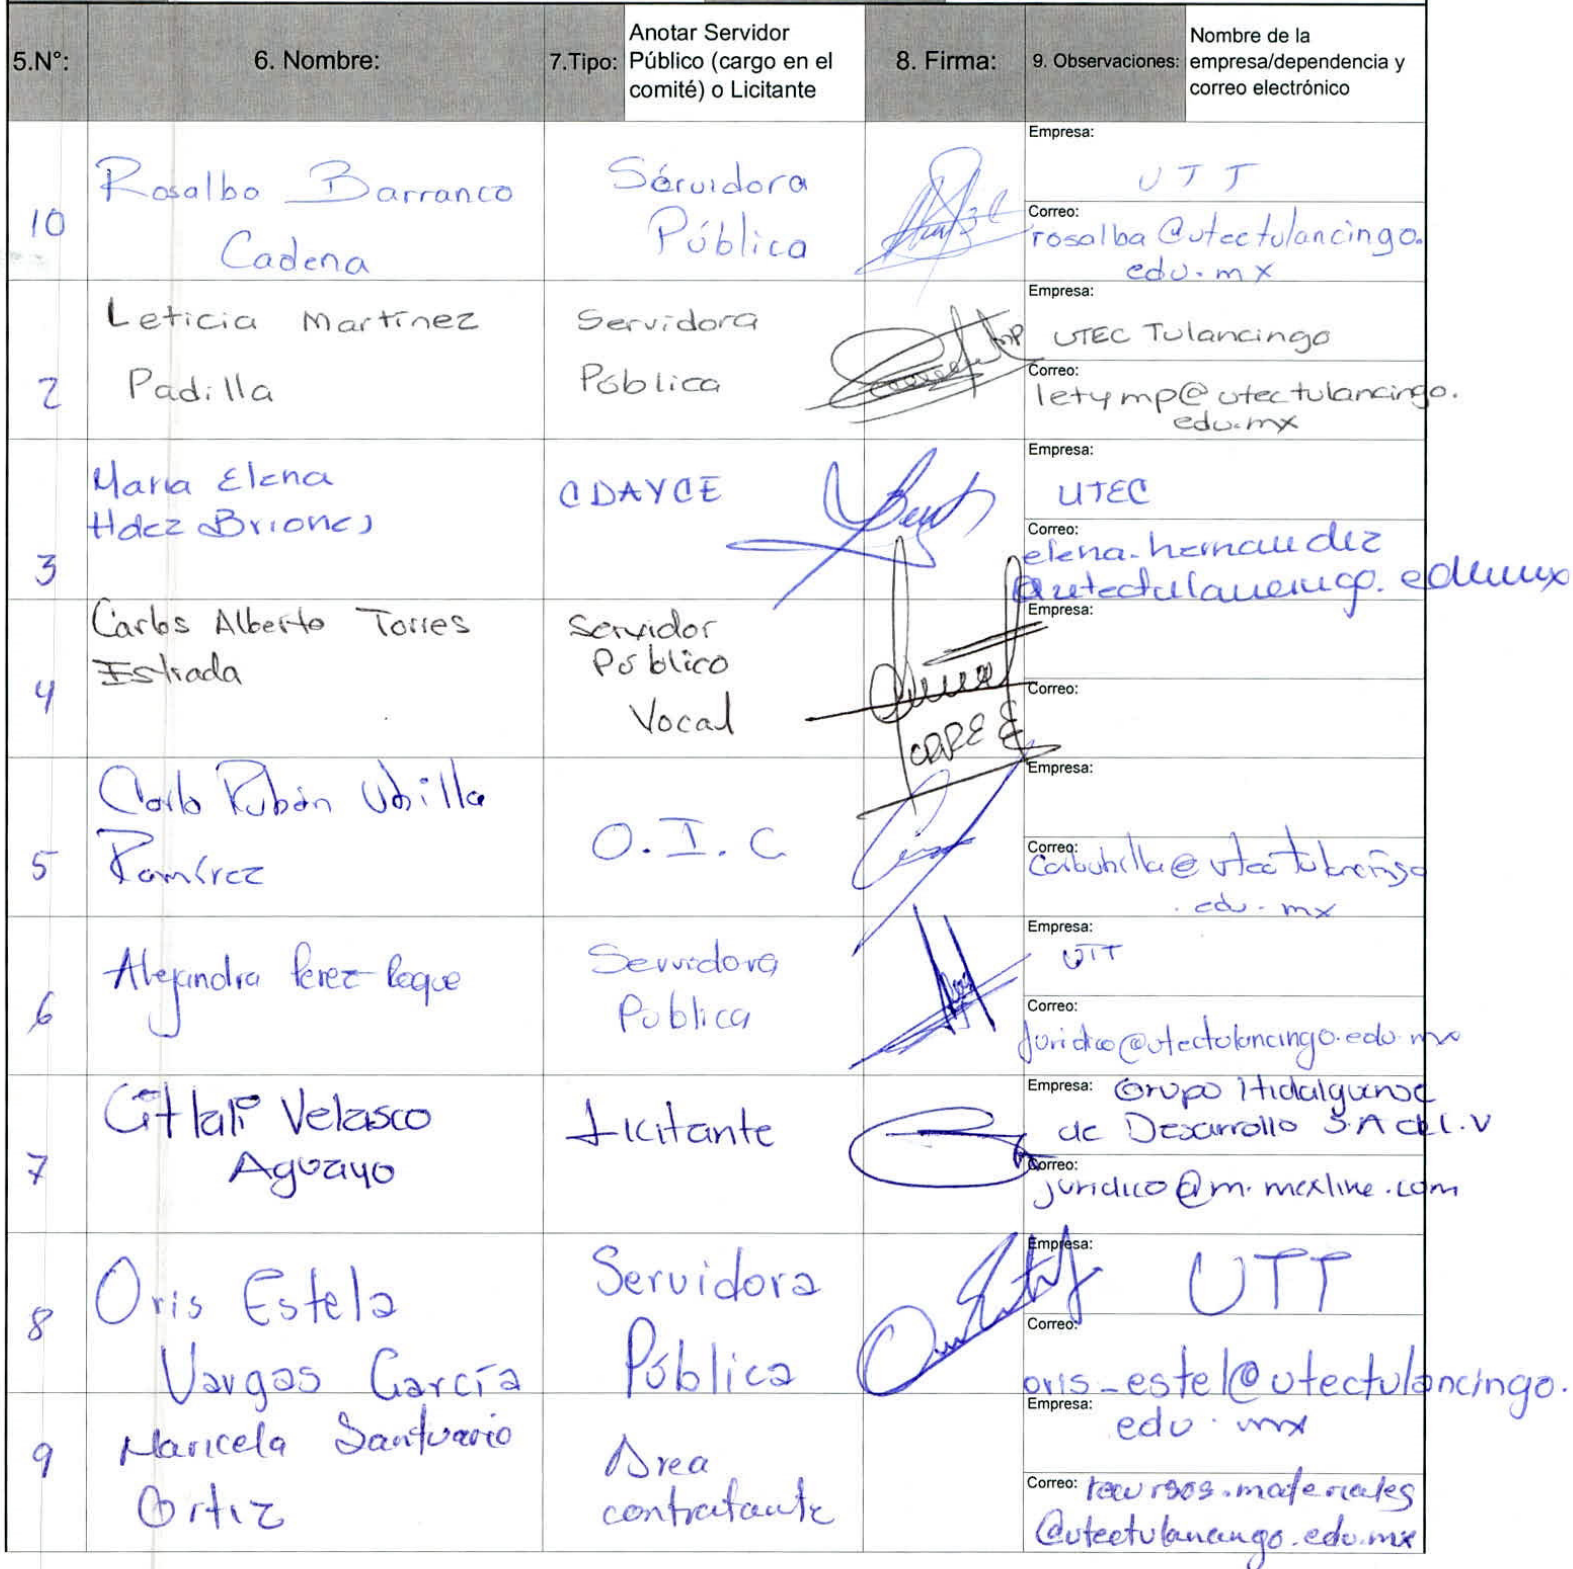 5.N°:
6. Nombre:
7.Tipo:
Anotar Servidor
Público (cargo en el
comité) o Licitante
8. Firma:
9. Observaciones:
Nombre de la
empresa/dependencia y
correo electrónico
10
Rosalba Barranco
Cadena
Sérvidora
Pública
Empresa:
UTT
Correo:
rosalba@utectulancingo.
edu.mx
2
Leticia Martínez
Padilla
Servidora
Pública
Empresa:
UTEC Tulancingo
Correo:
letymp@utectulancingo.
edu.mx
3
Maria Elena
Hdez Briones
CDAYCE
Empresa:
UTEC
Correo:
elena.hernandez
@utectulancingo.edu.mx
4
Carlos Alberto Torres
Estrada
Servidor
Público
Vocal
CAPEE
Empresa:
Correo:
5
Carlo Rubén Ubilla
Ramírez
O.I.C
Empresa:
Correo:
@utectulancingo
.edu.mx
6
Alejandra Perez Roque
Servidora
Publica
Empresa:
UTT
Correo:
juridico@utectulancingo.edu.mx
7
Citlali Velasco
Aguayo
Licitante
Empresa: Grupo Hidalguense
de Desarrollo S.A de C.V
Correo:
juridico@m.mexline.com
8
Oris Estela
Vargas García
Servidora
Pública
Empresa:
UTT
Correo:
oris_estel@utectulancingo.
edu.mx
9
Maricela Santuario
Ortiz
Area
contratante
Empresa:
Correo: recursos.materiales
@utectulancingo.edu.mx